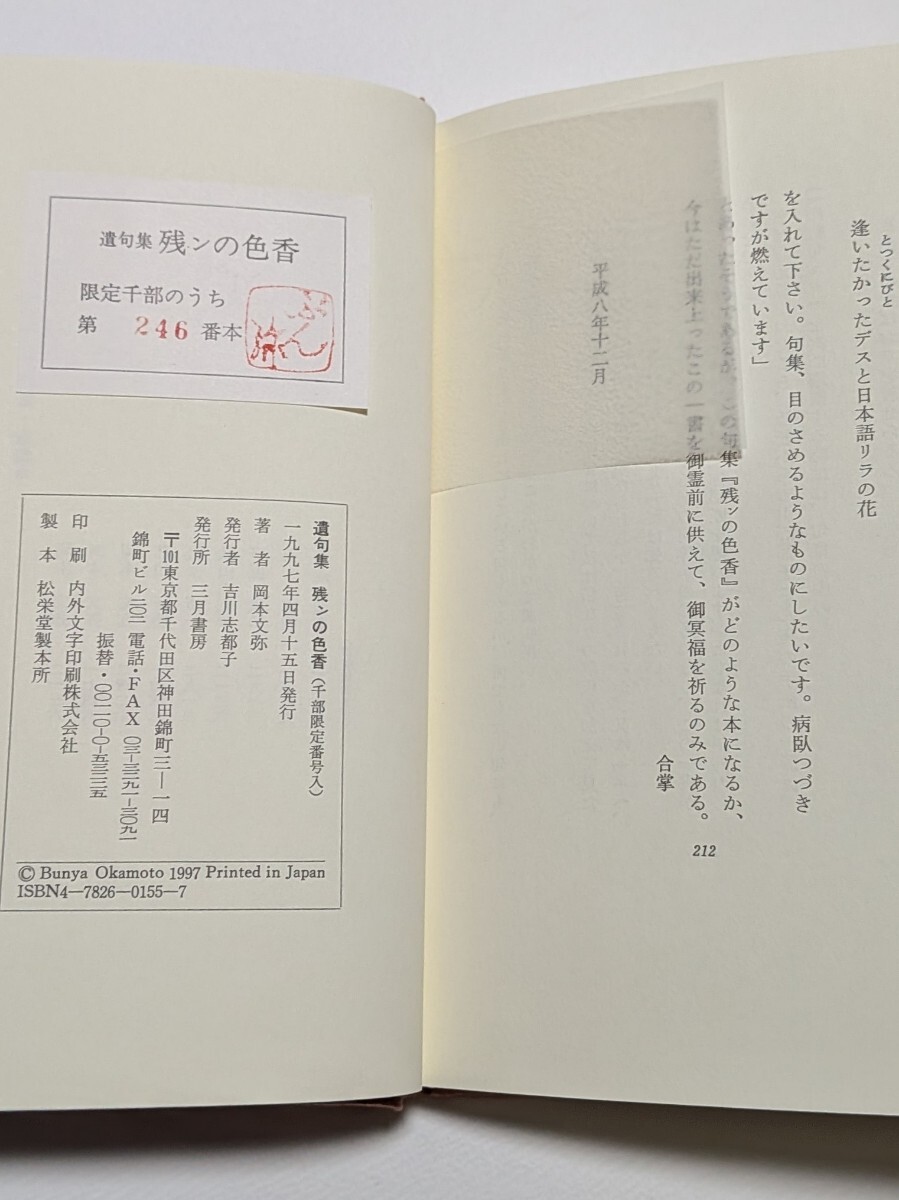 とつくにびと
逢いたかったデスと日本語リラの花
を入れて下さい。句集、目のさめるようなものにしたいです。病臥つづき
ですが燃えています」
とあったそうであるが、この句集『残ンの色香』がどのような本になるか、
今はただ出来上ったこの一書を御霊前に供えて、御冥福を祈るのみである。
合掌
平成八年十二月
212
遺句集 残ンの色香
限定千部のうち
第 246 番本
遺句集 残ンの色香（千部限定番号入）
一九九七年四月十五日発行
著者 岡本文弥
発行者 吉川志都子
発行所 三月書房
〒101東京都千代田区神田錦町三―一四
錦町ビル二〇二 電話・FAX 〇三―三二九一―三〇九一
振替・
印刷 内外文字印刷株式会社
製本 松栄堂製本所
© Bunya Okamoto 1997 Printed in Japan
ISBN4―7826―0155―7